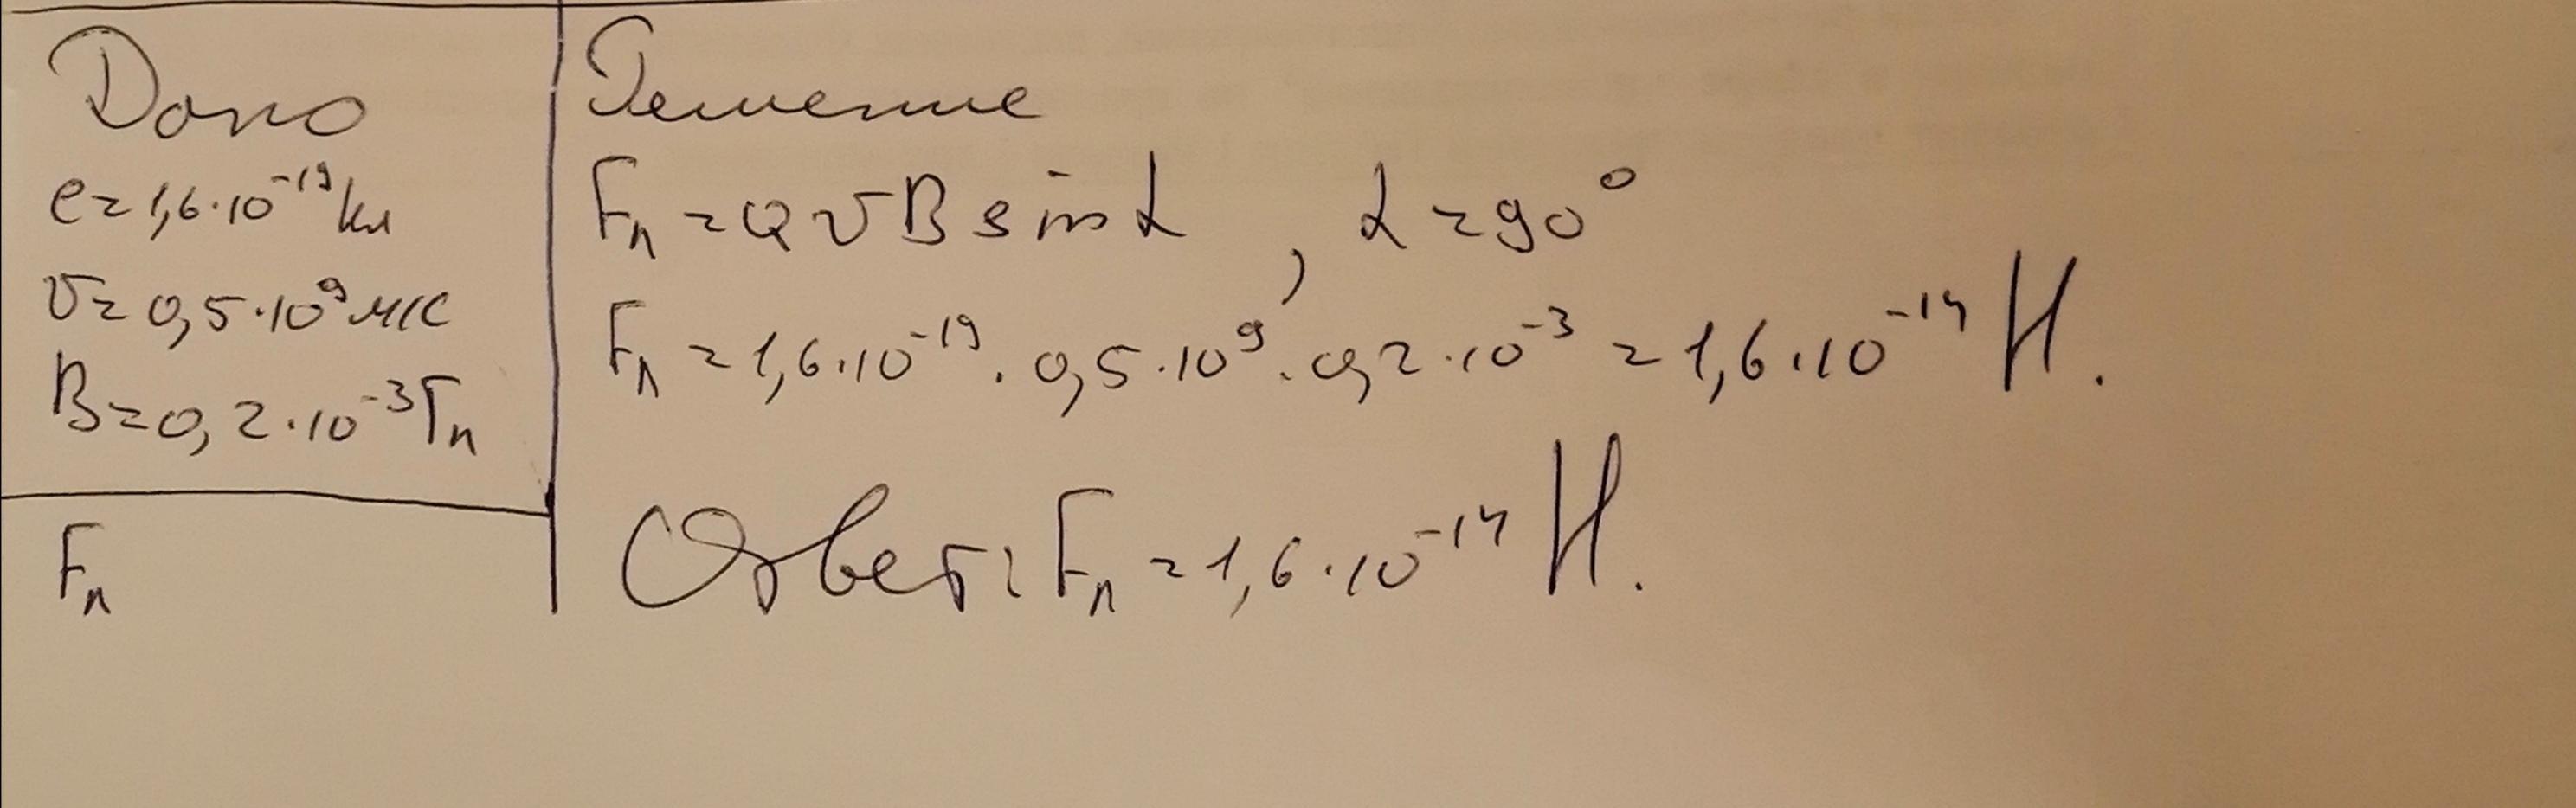 Дано
e = 1,6·10⁻¹⁹ Кл
v = 0,5·10⁹ м/с
B = 0,2·10⁻³ Тл
Fл
Решение
Fл = QvB sin α, α = 90°
Fл = 1,6·10⁻¹⁹ · 0,5·10⁹ · 0,2·10⁻³ = 1,6·10⁻¹⁴ Н.
Ответ: Fл = 1,6·10⁻¹⁴ Н.